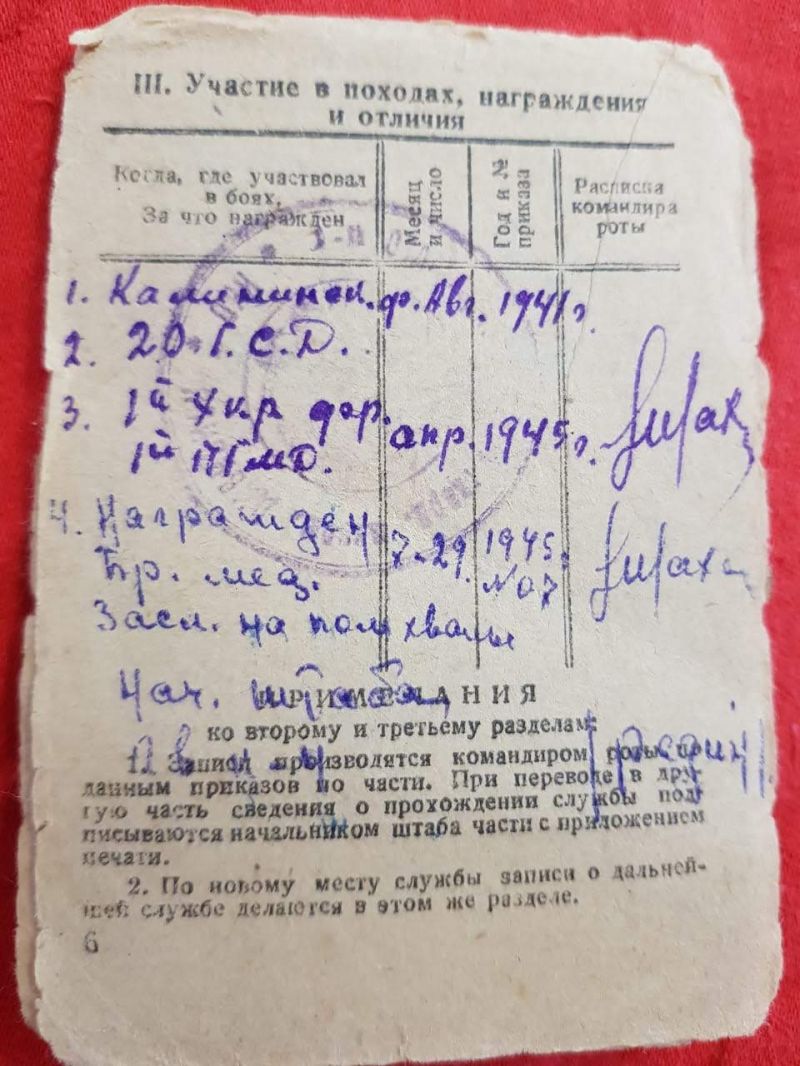 III. Участие в походах, награждения
и отличия
Когда, где участвовал
в боях,
За что награжден
Месяц
и число
Год и №
приказа
Расписка
командира
роты
1. Калининск. ф. Авг. 1941 г.
2. 20 Г.С.Д.
3. 1й Укр фр. апр. 1945 г.
1й
4. Награжден 7.29. 1945.
Бр. мед. №07
Засл. на похвалы
Нач. штаба
ПРИМЕЧАНИЯ
ко второму и третьему разделам:
1. Записи производятся командиром роты по
данным приказов по части. При переводе в дру-
гую часть сведения о прохождении службы под-
писываются начальником штаба части с приложением
печати.
2. По новому месту службы записи о дальней-
шей службе делаются в этом же разделе.
6